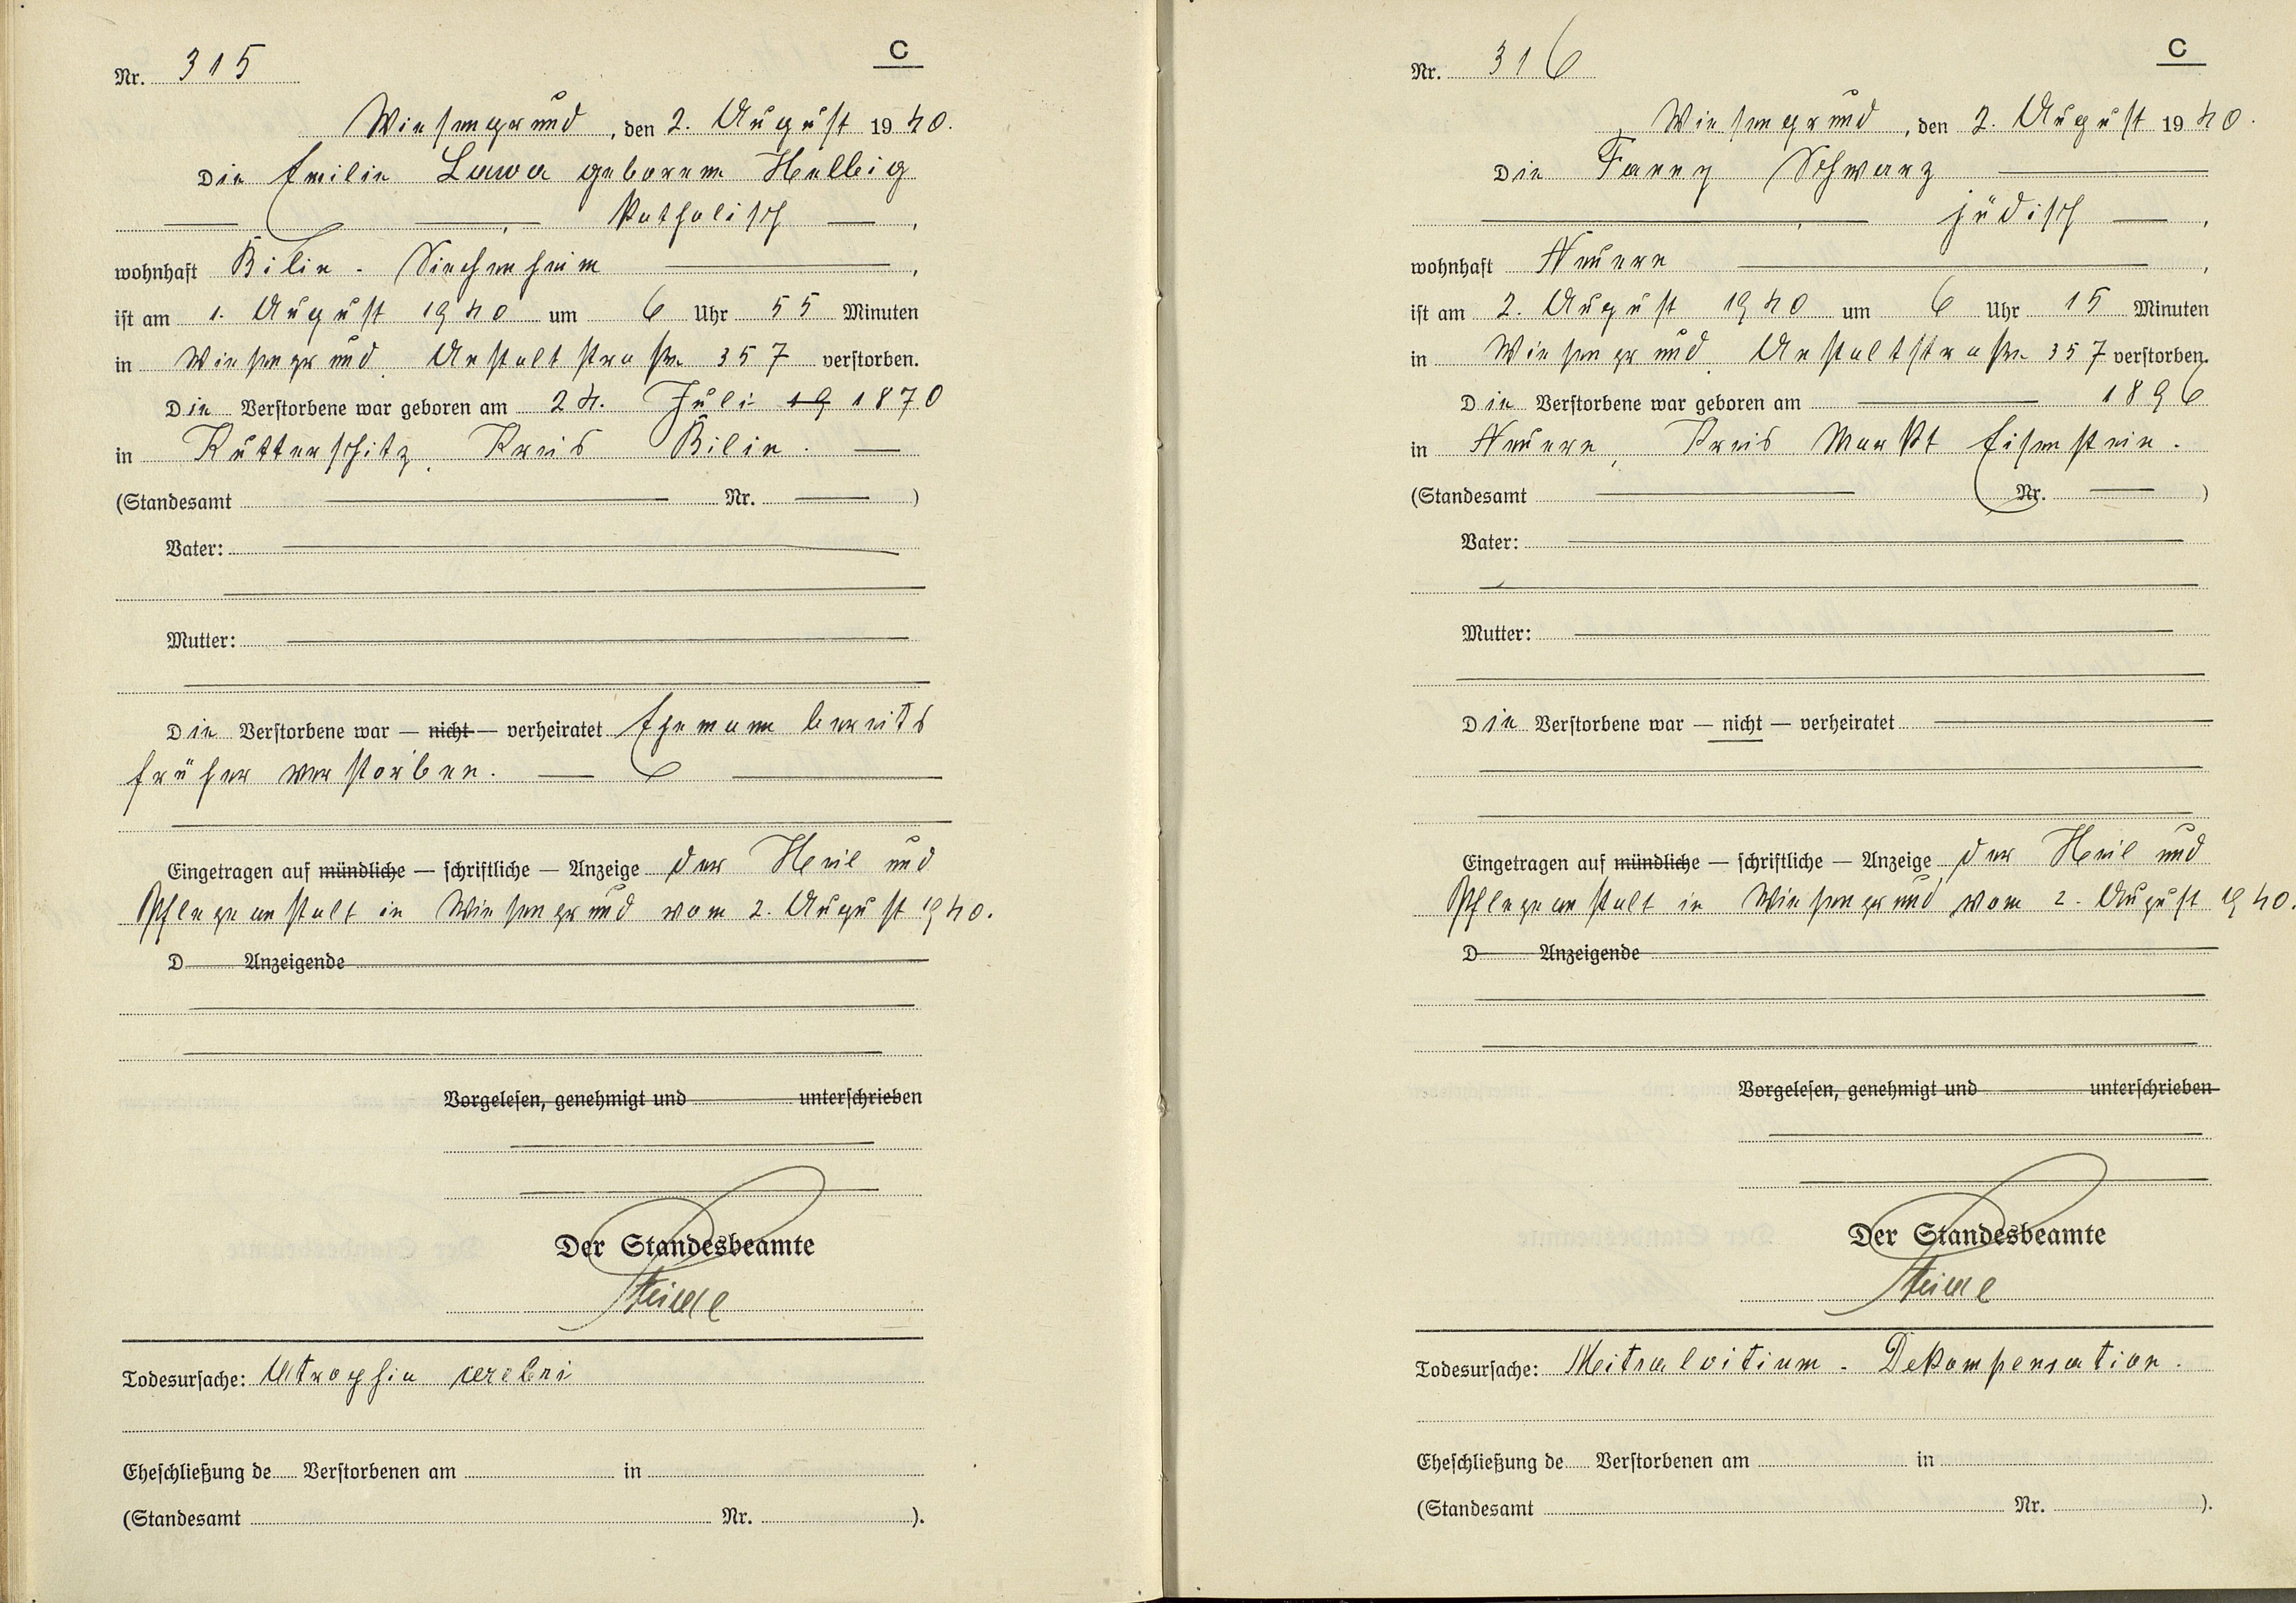 C
Nr. 315
Wiesengrund, den 2. August 1940.
Die Emilie Lawa geborene Helbig
katholisch,
wohnhaft Bilin - Siechenheim,
ist am 1. August 1940 um 6 Uhr 55 Minuten
in Wiesengrund, Anstaltstraße 357 verstorben.
Die Verstorbene war geboren am 24. Juli 19 1870
in Kutterschitz, Kreis Bilin.
(Standesamt Nr. )
Vater:
Mutter:
Die Verstorbene war — nicht — verheiratet Ehemann bereits
früher verstorben.
Eingetragen auf mündliche — schriftliche — Anzeige der Heil und
Pflegeanstalt in Wiesengrund vom 2. August 1940.
D Anzeigende
Vorgelesen, genehmigt und unterschrieben
Der Standesbeamte
Todesursache: Atrophia cerebri
Eheschließung de Verstorbenen am in
(Standesamt Nr. ).
C
Nr. 316
Wiesengrund, den 2. August 1940.
Die Fanny Schwarz
jüdisch,
wohnhaft Neuern,
ist am 2. August 1940 um 6 Uhr 15 Minuten
in Wiesengrund, Anstaltstraße 357 verstorben.
Die Verstorbene war geboren am 1896
in Neuern, Kreis Markt Eisenstein.
(Standesamt Nr. )
Vater:
Mutter:
Die Verstorbene war — nicht — verheiratet
Eingetragen auf mündliche — schriftliche — Anzeige der Heil und
Pflegeanstalt in Wiesengrund vom 2. August 1940.
D Anzeigende
Vorgelesen, genehmigt und unterschrieben
Der Standesbeamte
Todesursache: Mitralvitium - Dekompensation.
Eheschließung de Verstorbenen am in
(Standesamt Nr. ).